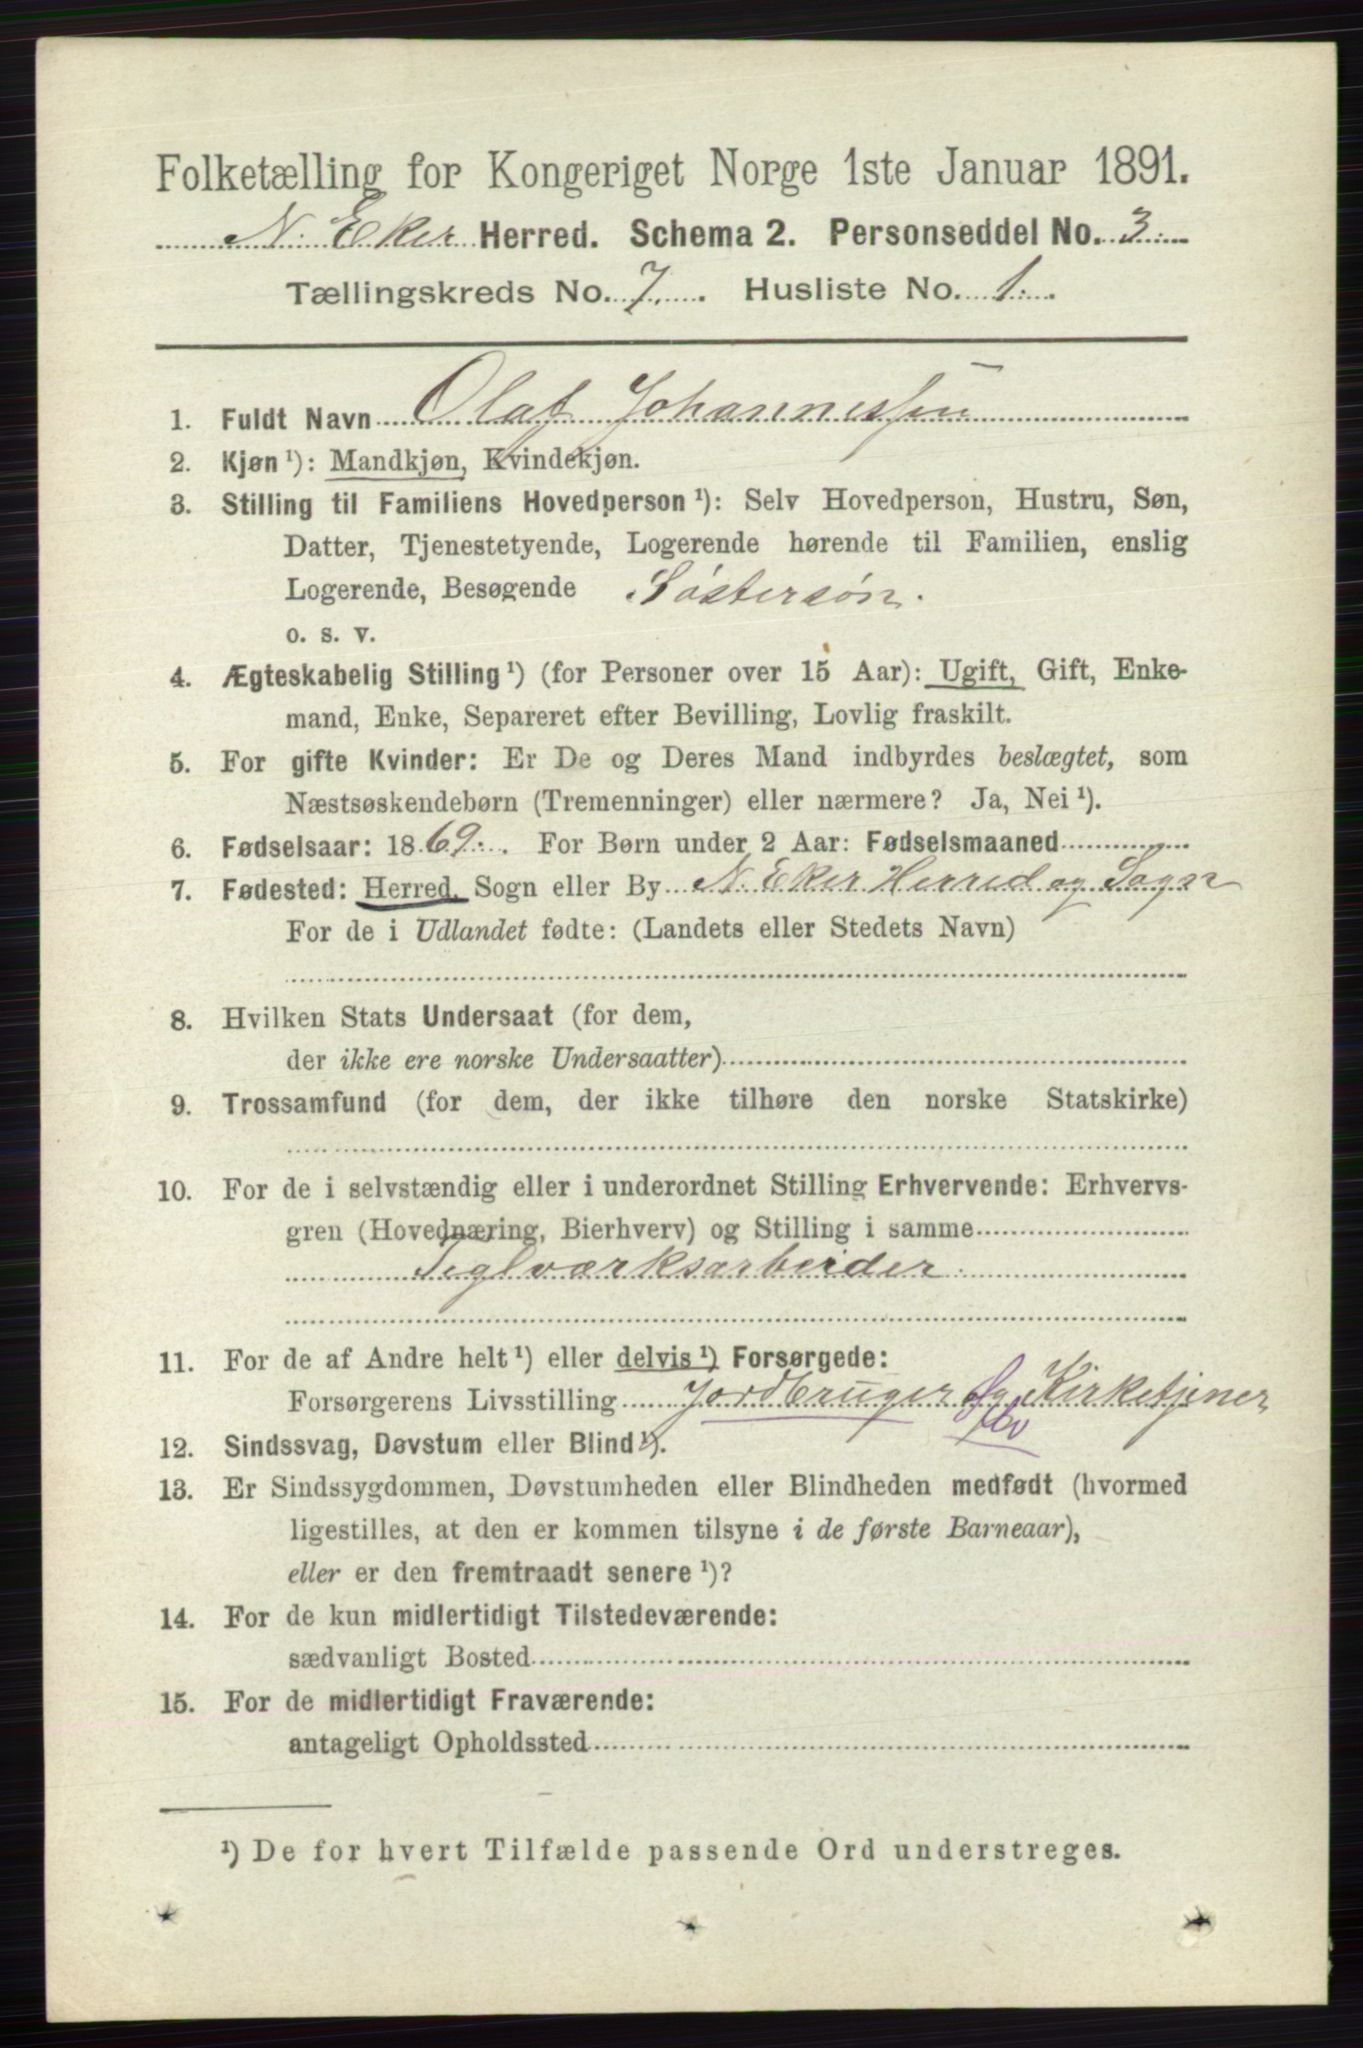 Folketælling for Kongeriget Norge 1ste Januar 1891.
N. Eker Herred. Schema 2. Personseddel No. 3.
Tællingskreds No. 7. Husliste No. 1.
1. Fuldt Navn Olaf Johannessen
2. Kjøn ¹): Mandkjøn, Kvindekjøn.
3. Stilling til Familiens Hovedperson ¹): Selv Hovedperson, Hustru, Søn,
Datter, Tjenestetyende, Logerende hørende til Familien, enslig
Logerende, Besøgende Søstersøn.
o. s. v.
4. Ægteskabelig Stilling ¹) (for Personer over 15 Aar): Ugift, Gift, Enke-
mand, Enke, Separeret efter Bevilling, Lovlig fraskilt.
5. For gifte Kvinder: Er De og Deres Mand indbyrdes beslægtet, som
Næstsøskendebørn (Tremenninger) eller nærmere? Ja, Nei ¹).
6. Fødselsaar: 1869. For Børn under 2 Aar: Fødselsmaaned
7. Fødested: Herred, Sogn eller By N. Eker Herred og Sogn
For de i Udlandet fødte: (Landets eller Stedets Navn)
8. Hvilken Stats Undersaat (for dem,
der ikke ere norske Undersaatter)
9. Trossamfund (for dem, der ikke tilhøre den norske Statskirke)
10. For de i selvstændig eller i underordnet Stilling Erhvervende: Erhvervs-
gren (Hovednæring, Bierhverv) og Stilling i samme
Teglværksarbeider.
11. For de af Andre helt ¹) eller delvis ¹) Forsørgede:
Forsørgerens Livsstilling Jordbruger og Kirketjener
12. Sindssvag, Døvstum eller Blind ¹).
13. Er Sindssygdommen, Døvstumheden eller Blindheden medfødt (hvormed
ligestilles, at den er kommen tilsyne i de første Barneaar),
eller er den fremtraadt senere ¹)?
14. For de kun midlertidigt Tilstedeværende:
sædvanligt Bosted
15. For de midlertidigt Fraværende:
antageligt Opholdssted
¹) De for hvert Tilfælde passende Ord understreges.